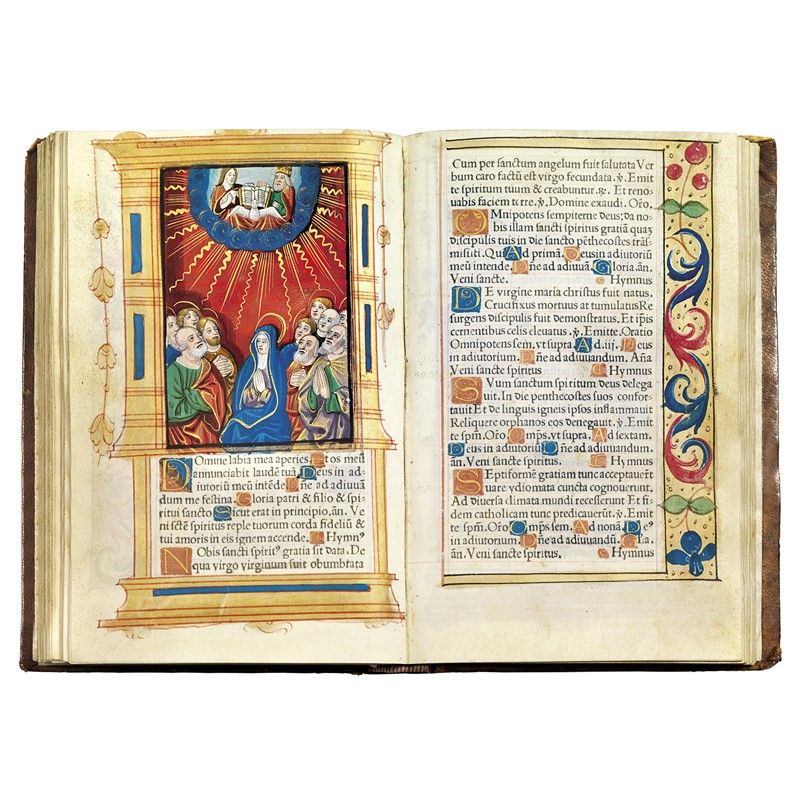 Domine labia mea aperies. Et os meū
annunciabit laudē tuā. Deus in ad-
iutoriū meū intēde. Dn̄e ad adiuuā
dum me festina. Gloria patri & filio & spi-
ritui sancto. Sicut erat in principio, ān. Ve
ni sct̄e spiritus reple tuorum corda fideliū &
tui amoris in eis ignem accende. C Hymnꝰ
Nobis sancti spiritꝰ gratia sit data. De
qua virgo virginum fuit obumbrata
Cum per sanctum angelum fuit salutata Ver
bum caro factū est virgo fecundata. ℣. Emit
te spiritum tuum & creabuntur. Et reno-
uabis faciem terre. ℣. Domine exaudi. Oro.
Omnipotens sempiterne deus; da no-
bis illam sancti spiritus gratiā quaȝ
discipulis tuis in die sancto pēthecostes trās-
misisti. Qui Ad primā. Deus in adiutoriū
meū intende. Dn̄e ad adiuuā. Gloria. ān.
Veni sancte. C Hymnus
De virgine maria christus fuit natus.
Crucifixus mortuus at tumulatus Re
surgens discipulis fuit demonstratus. Et ip̄is
cernentibus celis eleuatus. ℣. Emitte. Oratio
Omnipotens sem. vt supra. Ad .iij. Deus
in adiutorium. Dn̄e ad adiuuandum. Aña
Veni sancte spiritus. C Hymnus
Suum sanctum spiritum deus delega
uit. In die penthecostes suos confor-
tauit Et de linguis igneis ipsos inflammauit
Relīquere orphanos eos denegauit. ℣. Emit
te spm̄. Oro. Omps̄. vt supra. Ad sextam.
Deus in adiutoriū Dn̄e ad adiuuandum
ān. Veni sancte spiritus. C Hymnus
Septiformē gratiam tunc acceptauerūt
Quare ydiomata cuncta cognouerunt.
Ad diuersa climata mundi recesserunt Et fi-
dem catholicam tunc predicauerūt. ℣. Emit
te spm̄. Oro Omps̄ sem. Ad nonā. Deꝰ
in adiutorium. Dn̄e ad adiuuandū. Gl̄a.
ān. Veni sancte spiritus. C Hymnus